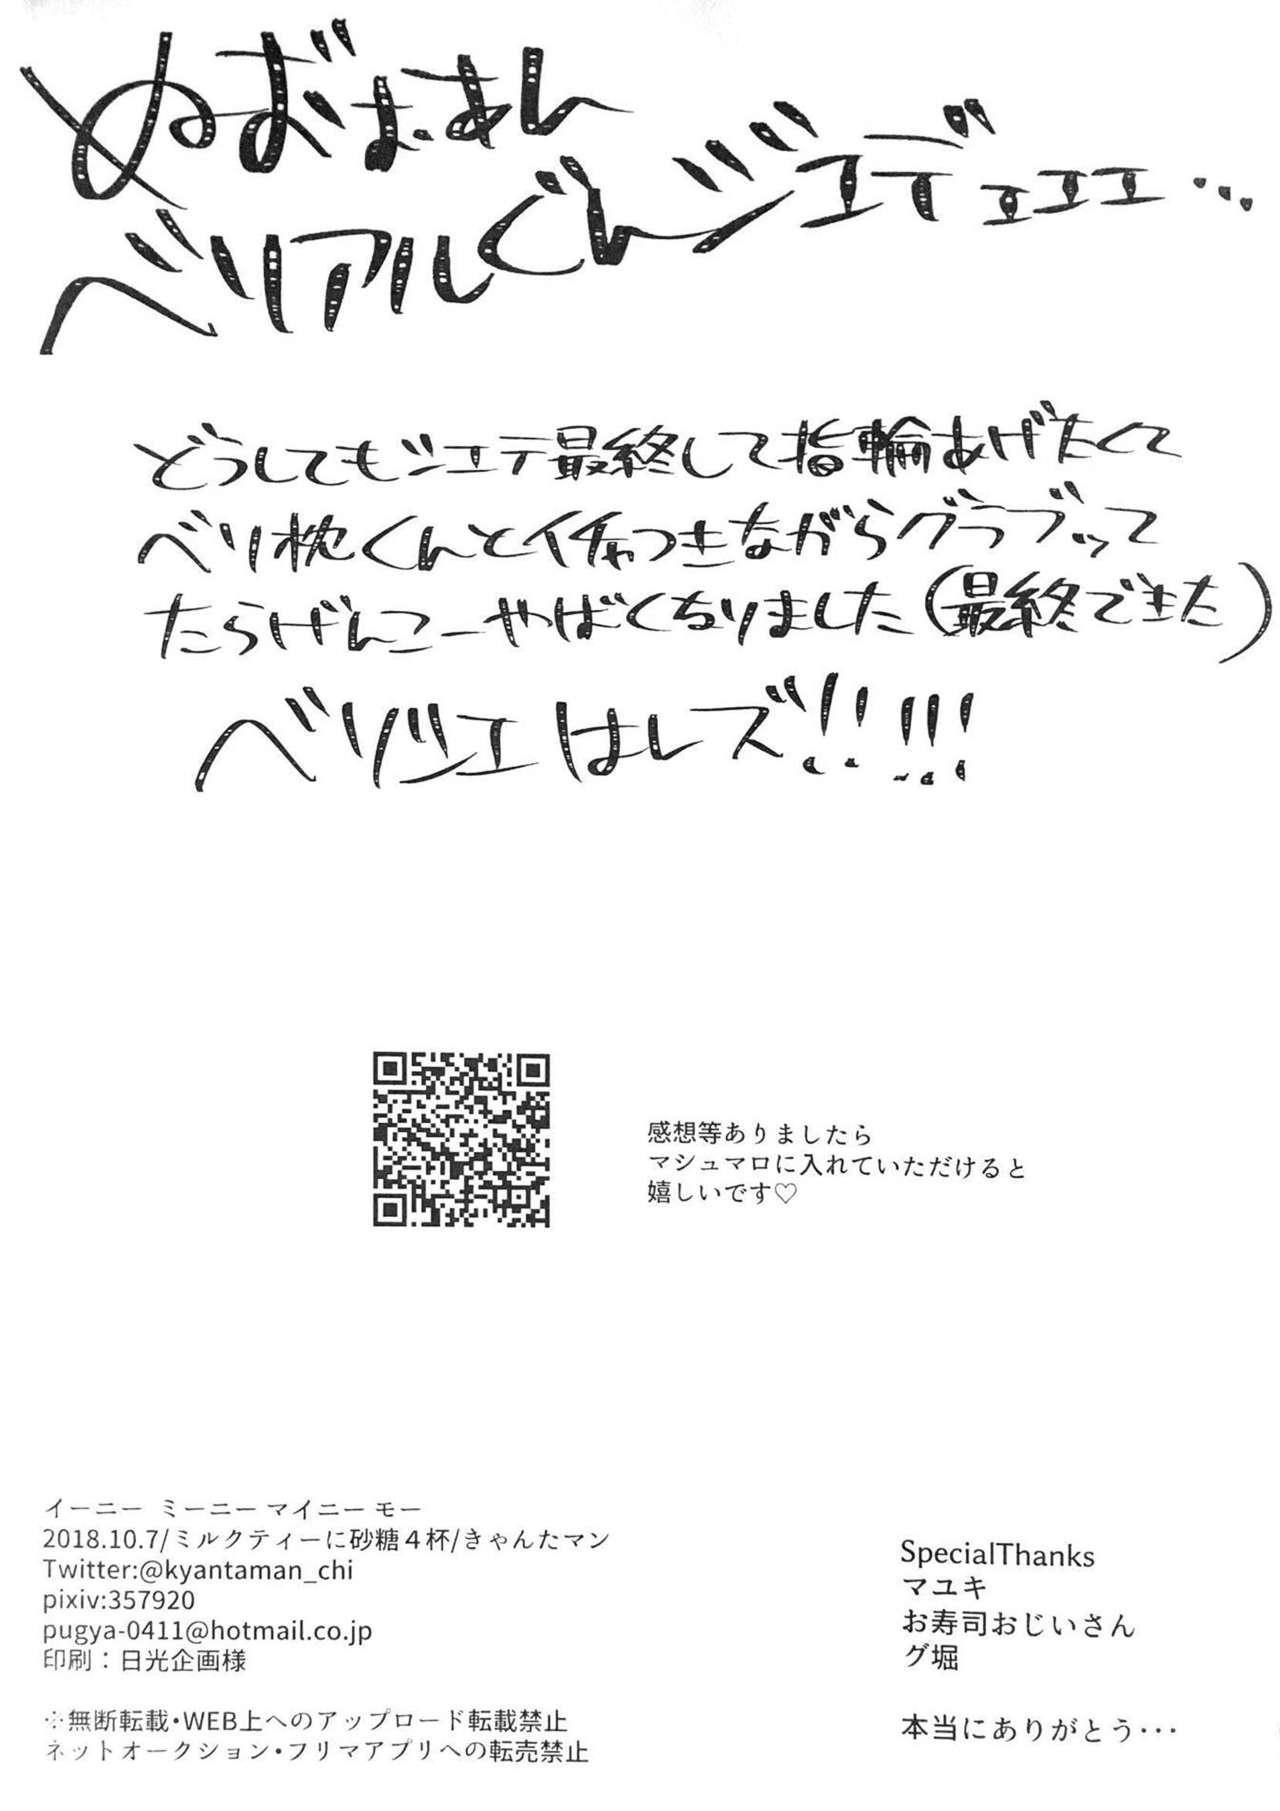 ぬおぉあん
ベリアルぐんジエデェエエ…
どうしてもシエテ最終して指輪あげたくて
ベリ枕くんとイチャつきながらグラブって
たらげんこーやばくなりました(最終できた)
ベリシエはレズ!!!!!
感想等ありましたら
マシュマロに入れていただけると
嬉しいです♡
イーニー ミーニー マイニー モー
2018.10.7/ミルクティーに砂糖4杯/きゃんたマン
Twitter:@kyantaman_chi
pixiv:357920
pugya-0411@hotmail.co.jp
印刷：日光企画様
※無断転載・WEB上へのアップロード転載禁止
ネットオークション・フリマアプリへの転売禁止
SpecialThanks
マユキ
お寿司おじいさん
グ堀
本当にありがとう・・・